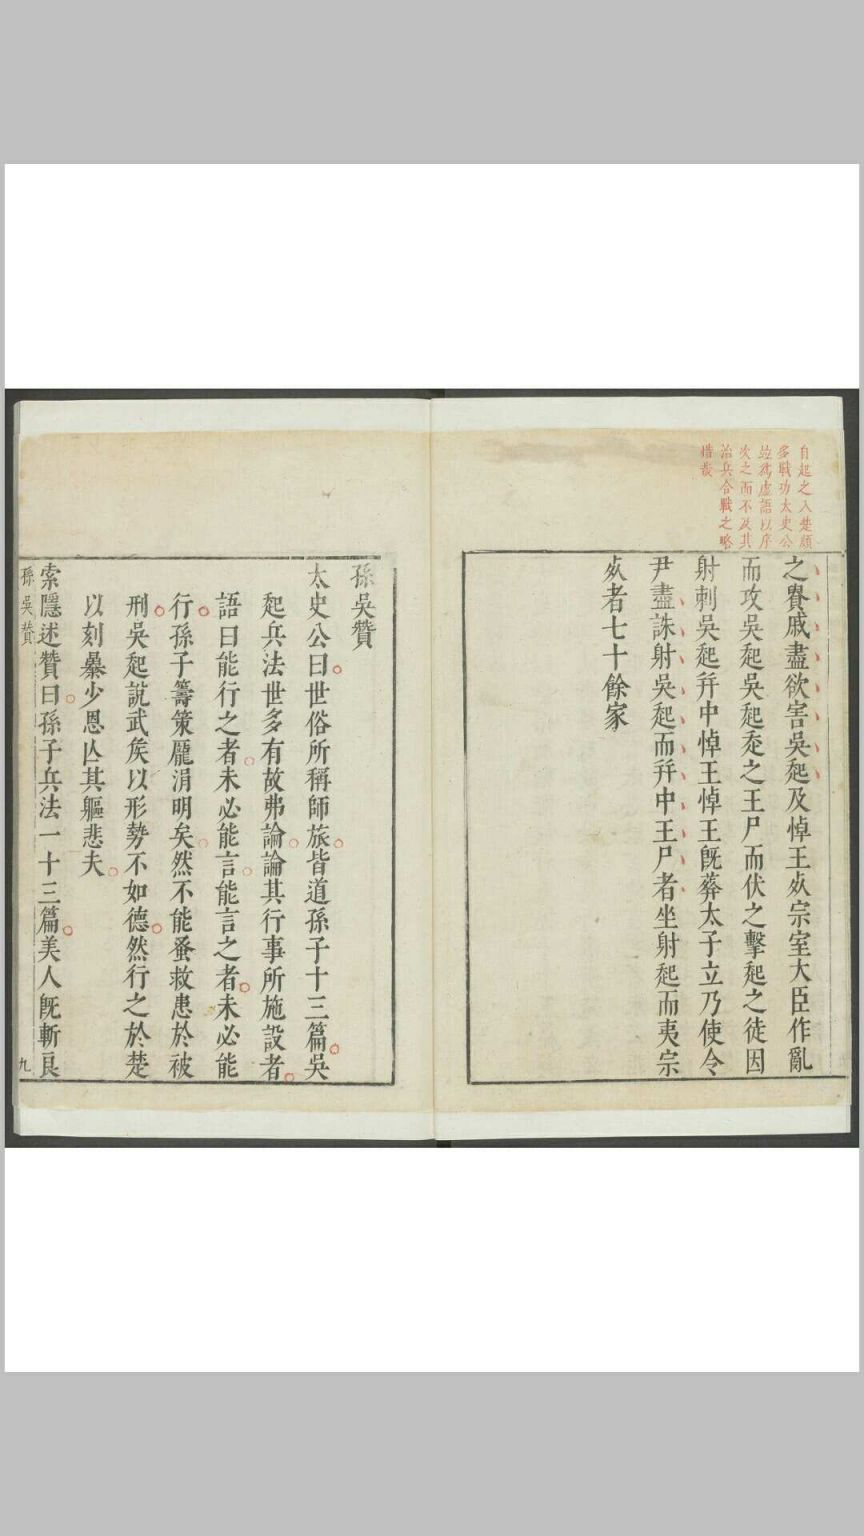 自起之入楚頗
多戰功太史公
竝爲虛語以序
次之而不及其
治兵合戰之略
惜哉
之貴戚盡欲害吳起及悼王死宗室大臣作亂
而攻吳起吳起走之王尸而伏之擊起之徒因
射刺吳起幷中悼王悼王旣葬太子立乃使令
尹盡誅射吳起而幷中王尸者坐射起而夷宗
死者七十餘家
孫吳贊
太史公曰世俗所稱師旅皆道孫子十三篇吳
起兵法世多有故弗論論其行事所施設者
語曰能行之者未必能言能言之者未必能
行孫子籌策龐涓明矣然不能蚤救患於被
刑吳起說武矦以形勢不如德然行之於楚
以刻暴少恩亾其軀悲夫
索隱述贊曰孫子兵法一十三篇美人旣斬良
孫吳贊
九